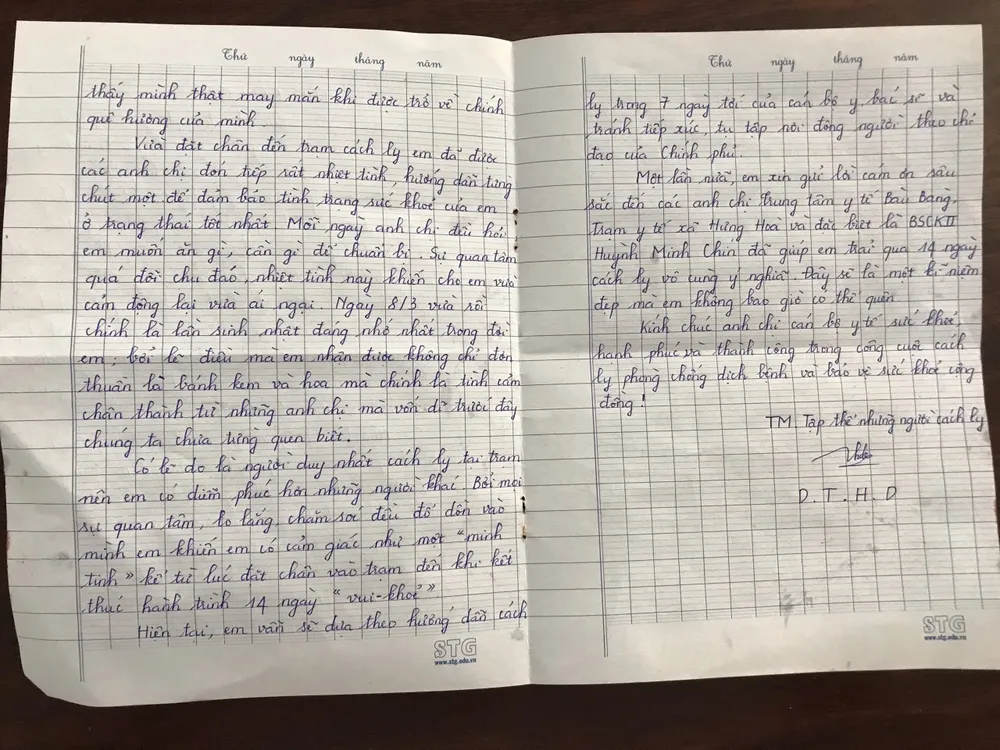 Thứ ngày tháng năm
thấy mình thật may mắn khi được trở về chính
quê hương của mình.
Vừa đặt chân đến trạm cách ly em đã được
các anh chị đón tiếp rất nhiệt tình, hướng dẫn từng
chút một để đảm bảo tình trạng sức khoẻ của em
ở trạng thái tốt nhất. Mỗi ngày anh chị đều hỏi
em muốn ăn gì, cần gì để chuẩn bị. Sự quan tâm
quá đỗi chu đáo, nhiệt tình này khiến cho em vừa
cảm động lại vừa ái ngại. Ngày 8/3 vừa rồi
chính là lần sinh nhật đáng nhớ nhất trong đời
em, bởi lẽ điều mà em nhận được không chỉ đơn
thuần là bánh kem và hoa mà chính là tình cảm
chân thành từ những anh chị mà vốn dĩ trước đây
chúng ta chưa từng quen biết.
Có lẽ do là người duy nhất cách ly tại trạm
nên em có diễm phúc hơn những người khác. Bởi mọi
sự quan tâm, lo lắng, chăm sóc đều đổ dồn vào
mình em khiến em có cảm giác như một "minh
tinh" kể từ lúc đặt chân vào trạm đến khi kết
thúc hành trình 14 ngày "vui-khoẻ"
Hiện tại, em vẫn sẽ dựa theo hướng dẫn cách
STG
www.stg.edu.vn
Thứ ngày tháng năm
ly trong 7 ngày tới của cán bộ y, bác sĩ và
tránh tiếp xúc, tụ tập nơi đông người theo chỉ
đạo của Chính phủ.
Một lần nữa, em xin gửi lời cám ơn sâu
sắc đến các anh chị trung tâm y tế Bàu Bàng,
Trạm y tế xã Hưng Hoà và đặc biệt là BSCKII
Huỳnh Minh Chín đã giúp em trải qua 14 ngày
cách ly vô cùng ý nghĩa. Đây sẽ là một kỉ niệm
đẹp mà em không bao giờ có thể quên.
Kính chúc anh chị cán bộ y tế sức khoẻ,
hạnh phúc và thành công trong công cuộc cách
ly phòng chống dịch bệnh và bảo vệ sức khoẻ cộng
đồng!
TM. Tập thể những người cách ly
D.T.H.D
STG
www.stg.edu.vn